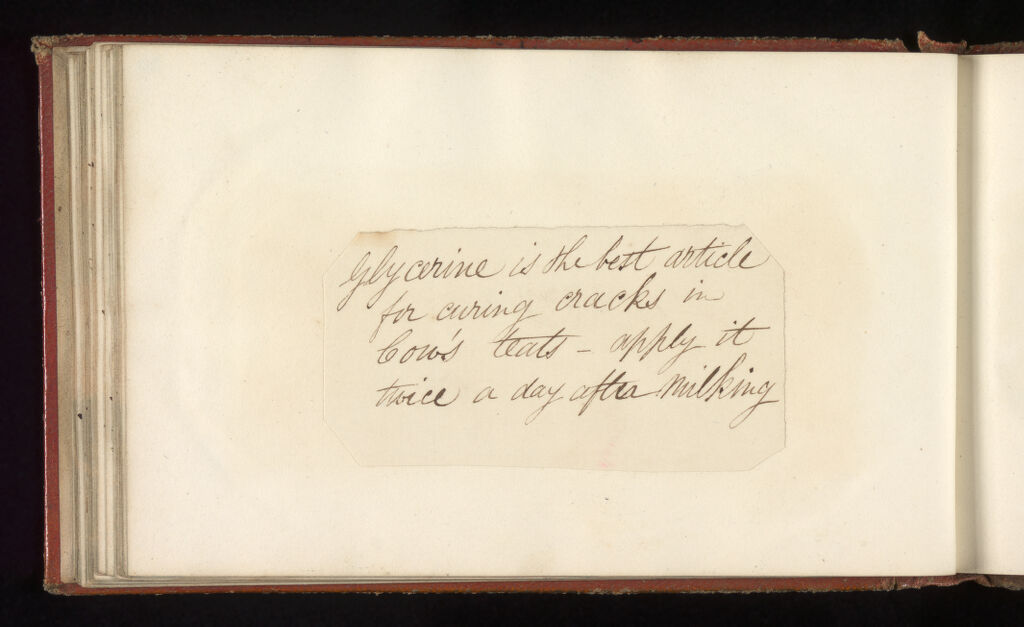 Glycerine is the best article
for curing cracks in
Cow's teats - apply it
twice a day after milking